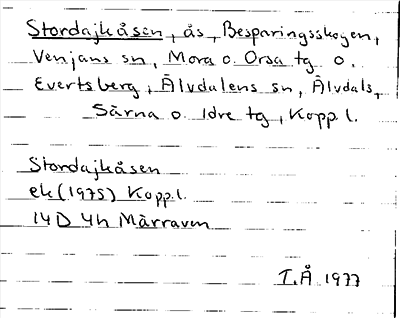 Stordajkåsen, ås, Besparingsskogen,
Venjans sn, Mora o. Orsa tg o.
Evertsberg, Älvdalens sn, Älvdals,
Särna o. Idre tg, Kopp.l.
Stordajkåsen
ek (1975) Kopp.l.
14D 4h Mårraven
T.Å 1977